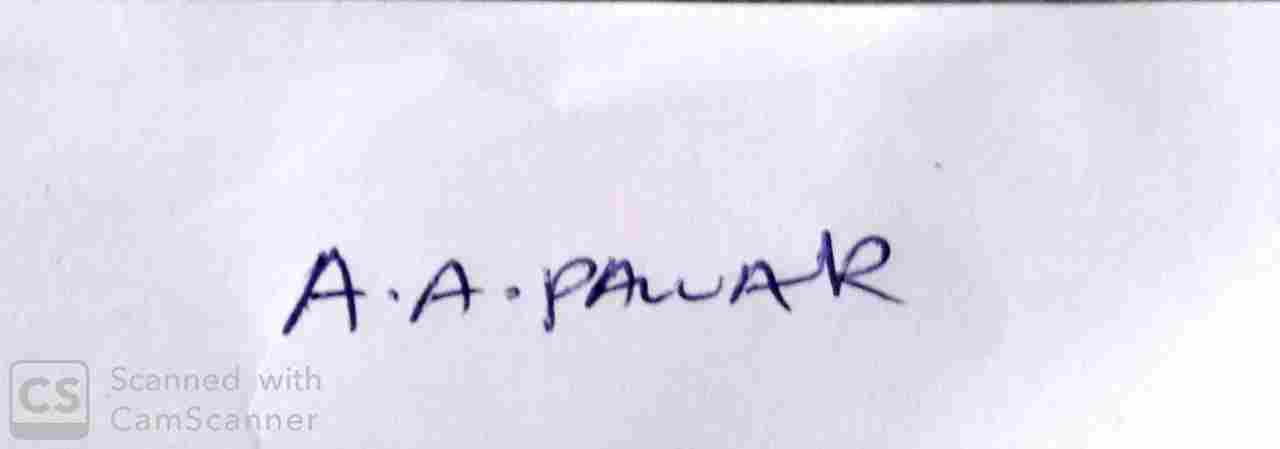 A.A.PAWAR
CS Scanned with
CamScanner